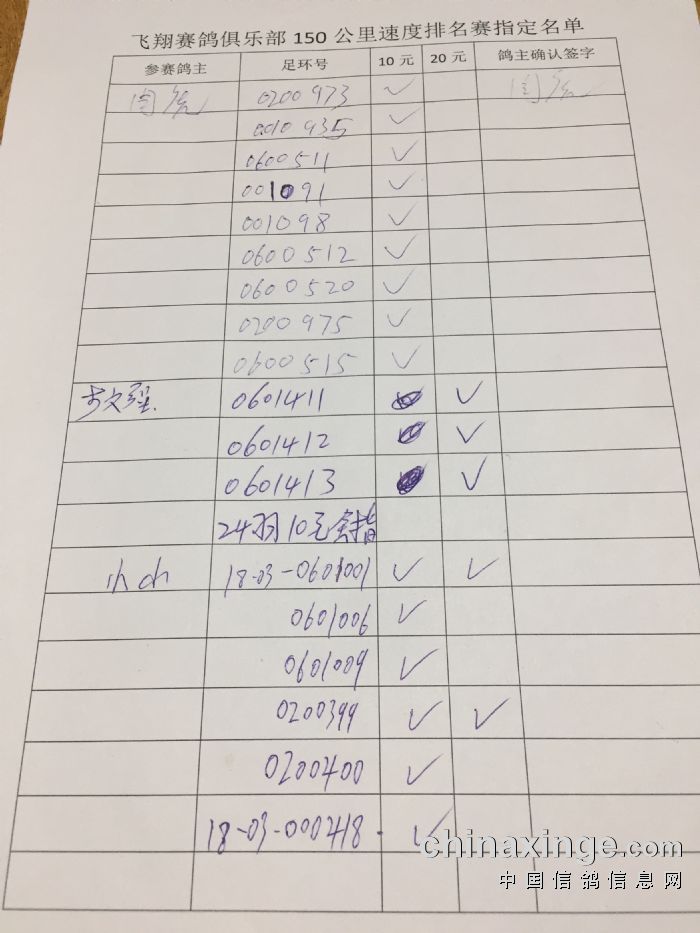 飞翔赛鸽俱乐部 150 公里速度排名赛指定名单
参赛鸽主 足环号 10 元 20 元 鸽主确认签字
0200973 ✓
0010935 ✓
0600511 ✓
001091 ✓
001098 ✓
0600512 ✓
0600520 ✓
0200975 ✓
0600515 ✓
0601411 ✓
0601412 ✓
0601413 ✓
24羽10元全指
18-03-0601001 ✓ ✓
0601006 ✓
0601009 ✓
0200399 ✓ ✓
0200400 ✓
18-03-000418 ✓
chinaxinge.com
中国信鸽信息网